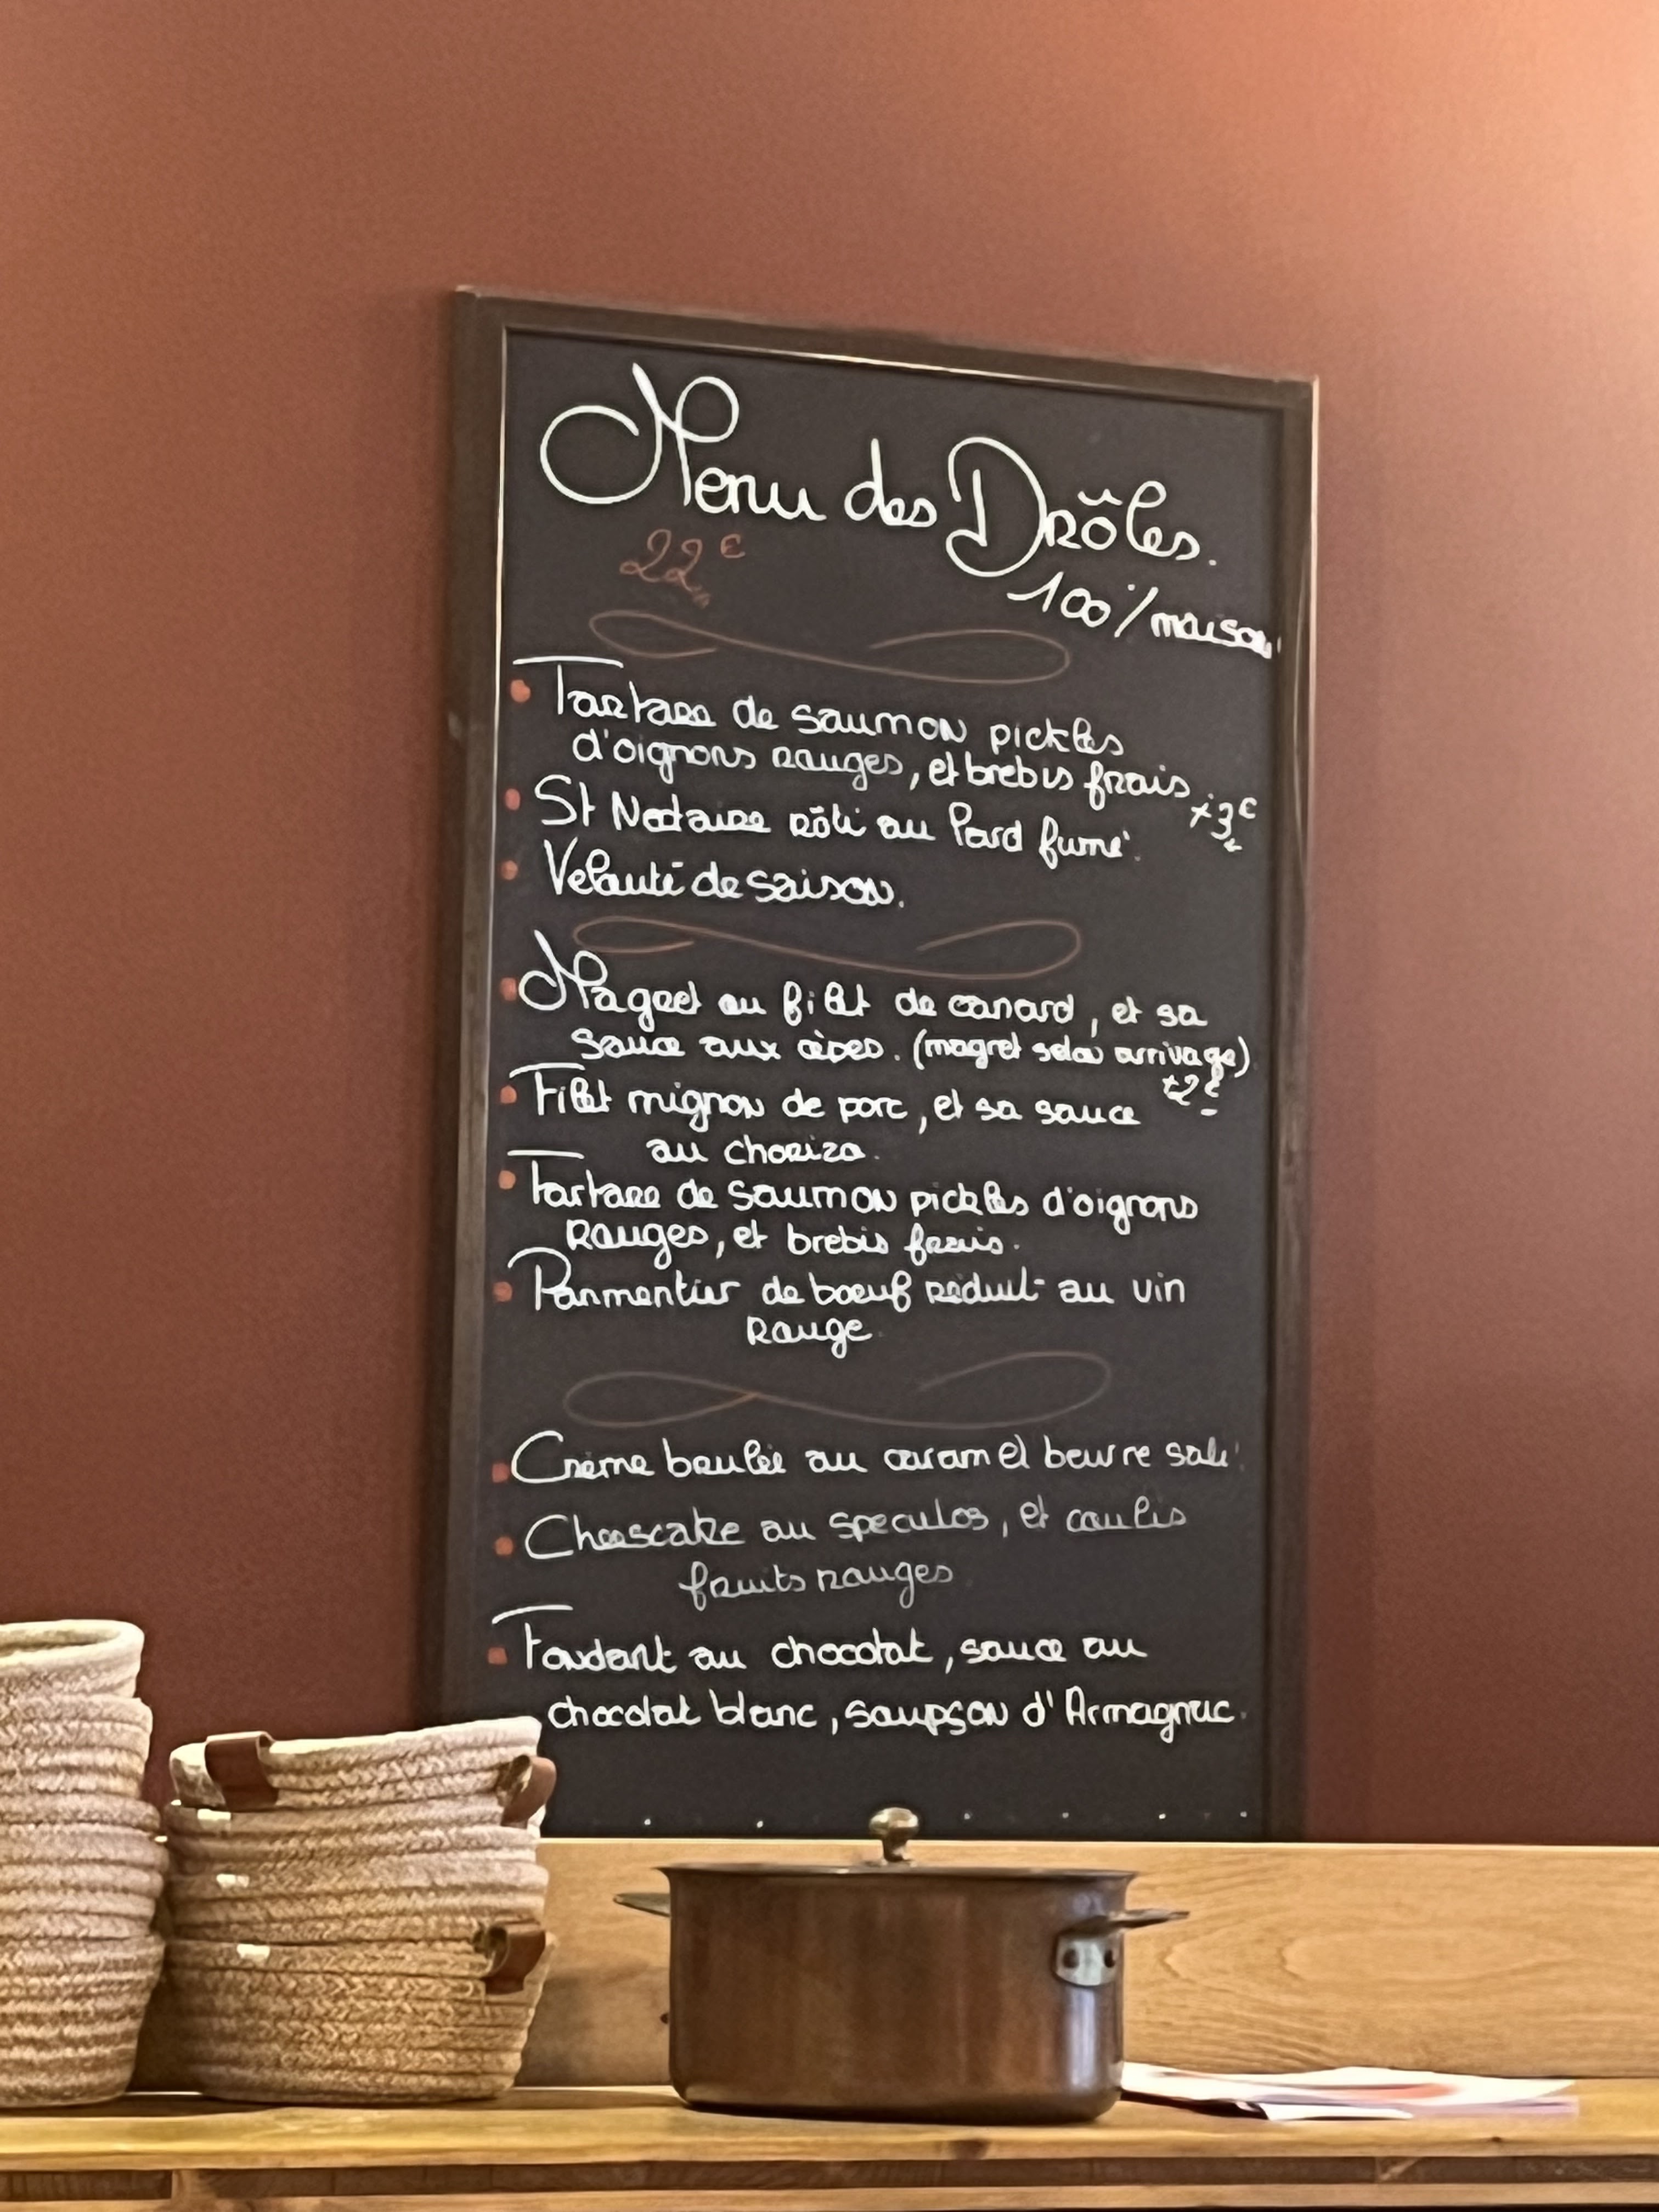 Menu des Drôles.
22€
100% maison
Tartare de saumon pickles
d'oignons rouges, et brebis frais +3€
St Nectaire rôti au lard fumé.
Velouté de saison.
Magret ou filet de canard, et sa
sauce aux cèpes. (magret selon arrivage)
+2€
Filet mignon de porc, et sa sauce
au chorizo.
Tartare de saumon pickles d'oignons
Rouges, et brebis frais.
Parmentier de boeuf réduit au vin
Rouge
Crème brulée au caramel beurre salé.
Cheescake au speculos, et coulis
fruits rouges
Fondant au chocolat, sauce au
chocolat blanc, soupçon d'Armagnac.